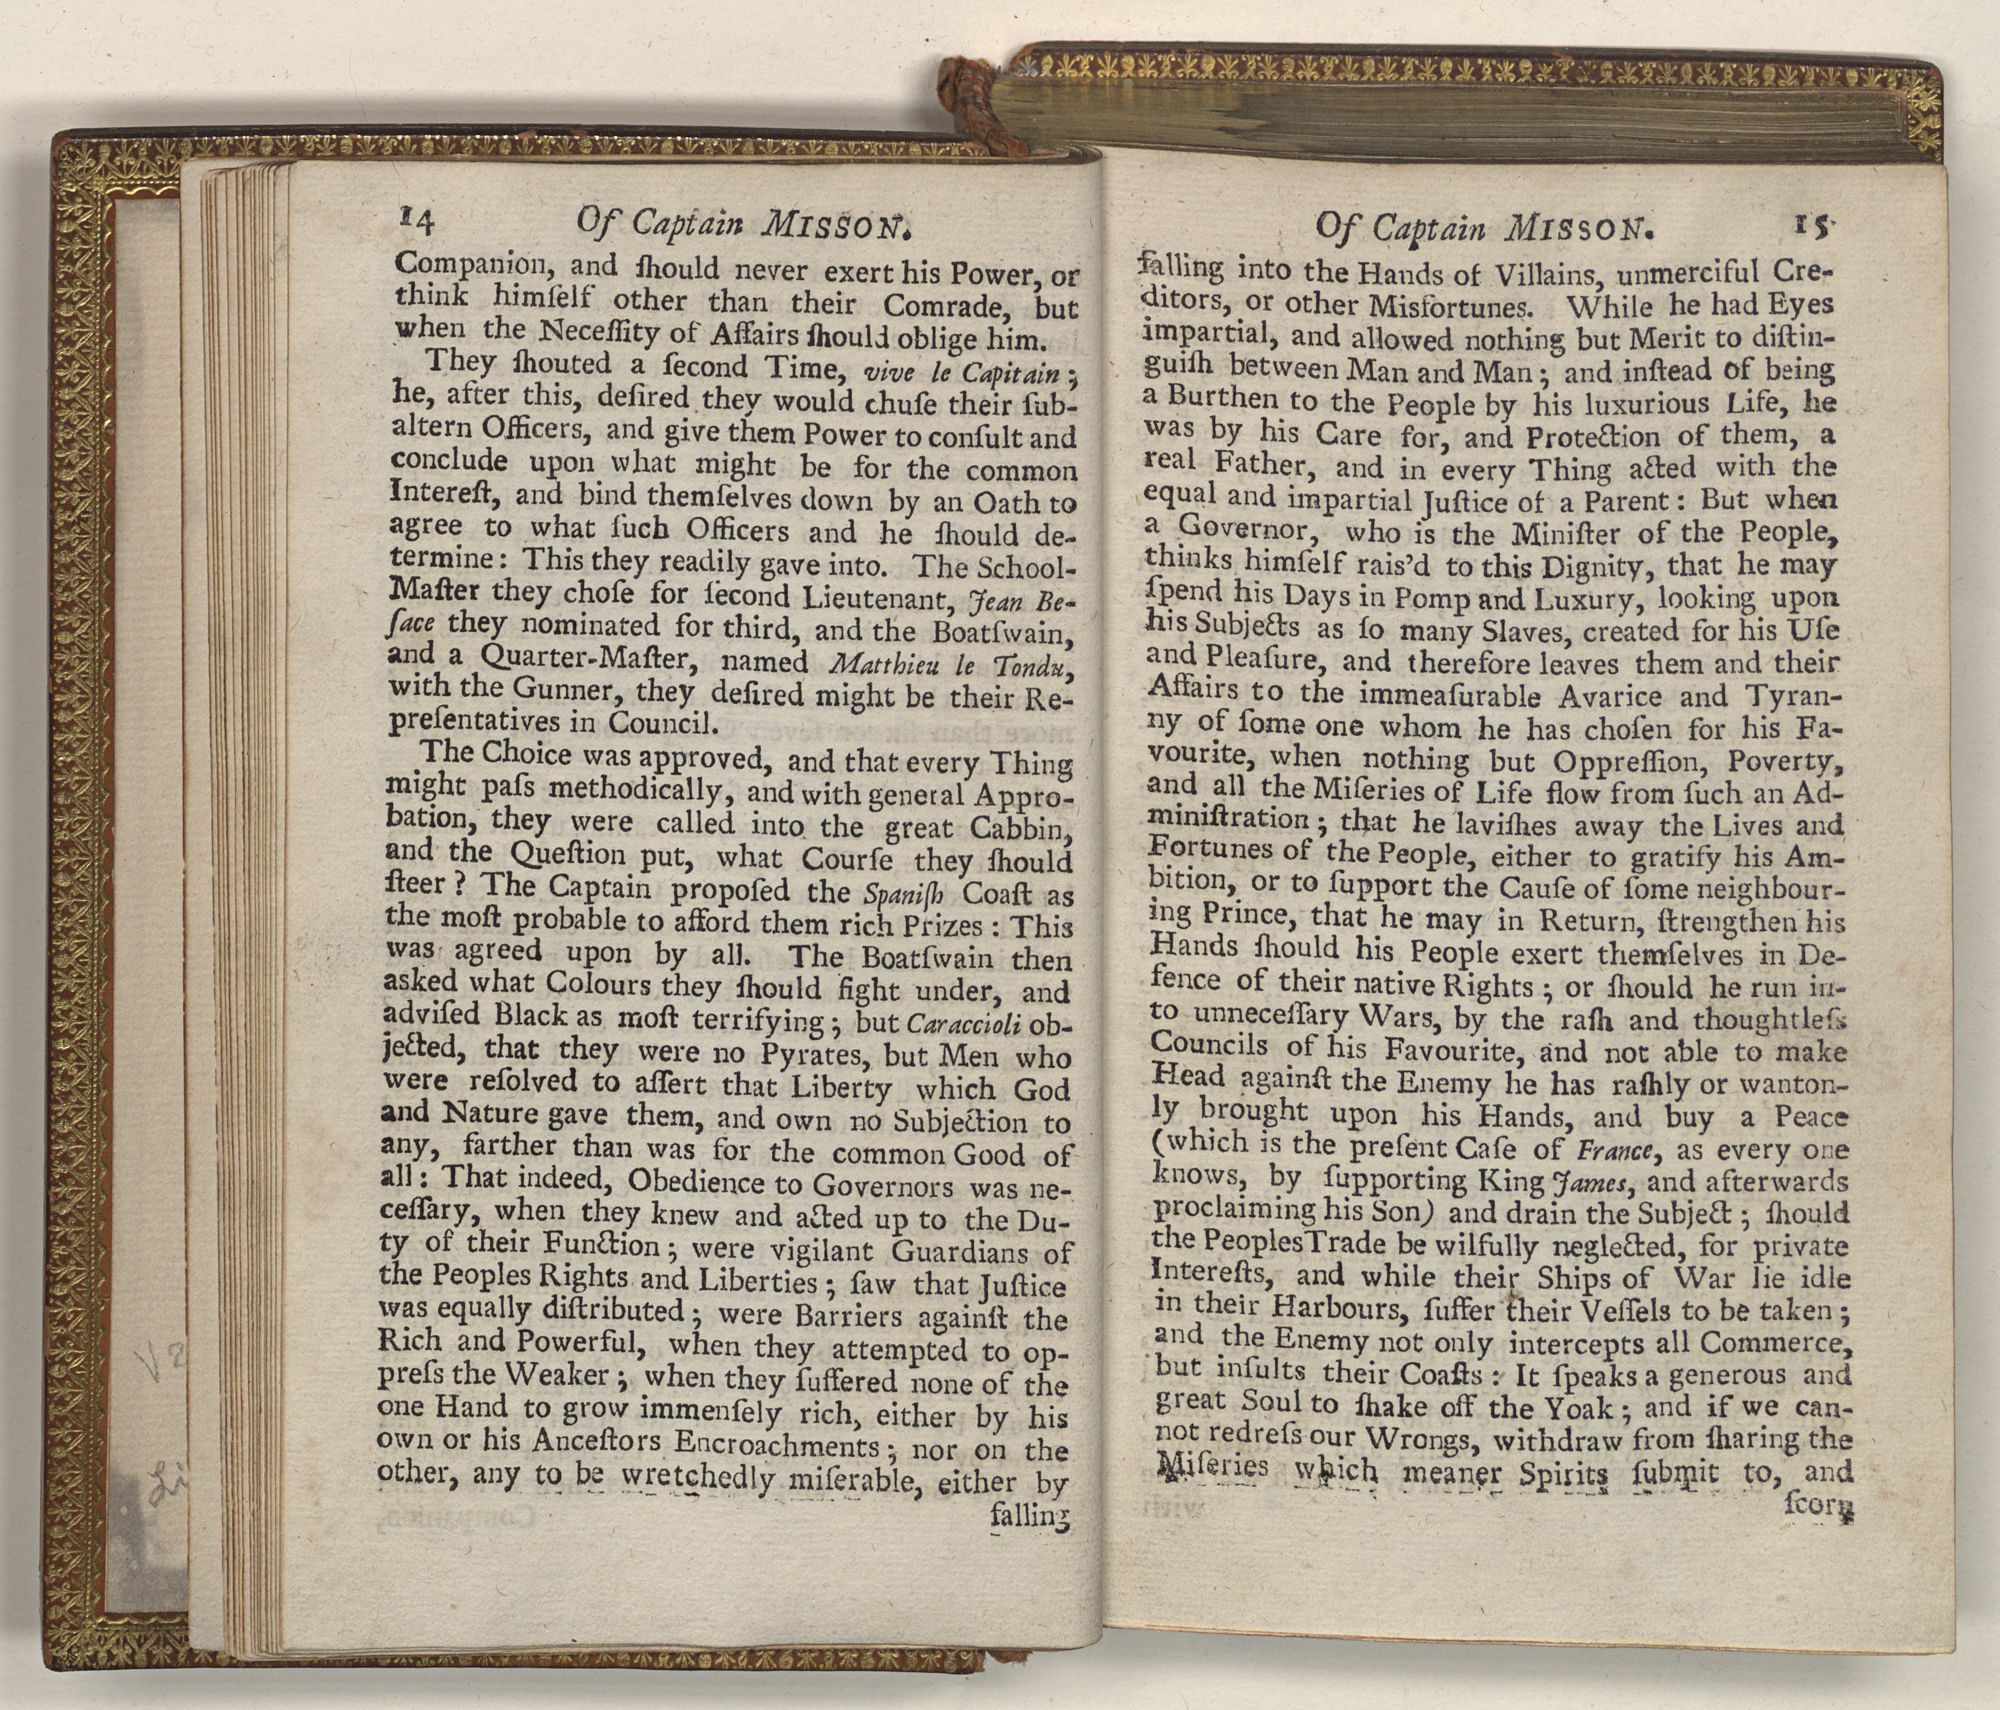 14 Of Captain MISSON.
Companion, and ſhould never exert his Power, or
think himſelf other than their Comrade, but
when the Neceſſity of Affairs ſhould oblige him.
They ſhouted a ſecond Time, vive le Capitain;
he, after this, deſired they would chuſe their ſub-
altern Officers, and give them Power to conſult and
conclude upon what might be for the common
Intereſt, and bind themſelves down by an Oath to
agree to what ſuch Officers and he ſhould de-
termine: This they readily gave into. The School-
Maſter they choſe for ſecond Lieutenant, Jean Be-
ſace they nominated for third, and the Boatſwain,
and a Quarter-Maſter, named Matthieu le Tondu,
with the Gunner, they deſired might be their Re-
preſentatives in Council.
The Choice was approved, and that every Thing
might paſs methodically, and with general Appro-
bation, they were called into the great Cabbin,
and the Queſtion put, what Courſe they ſhould
ſteer? The Captain propoſed the Spaniſh Coaſt as
the moſt probable to afford them rich Prizes: This
was agreed upon by all. The Boatſwain then
asked what Colours they ſhould fight under, and
adviſed Black as moſt terrifying; but Caraccioli ob-
jected, that they were no Pyrates, but Men who
were reſolved to aſſert that Liberty which God
and Nature gave them, and own no Subjection to
any, farther than was for the common Good of
all: That indeed, Obedience to Governors was ne-
ceſſary, when they knew and acted up to the Du-
ty of their Function; were vigilant Guardians of
the Peoples Rights and Liberties; ſaw that Juſtice
was equally diſtributed; were Barriers againſt the
Rich and Powerful, when they attempted to op-
preſs the Weaker; when they ſuffered none of the
one Hand to grow immenſely rich, either by his
own or his Anceſtors Encroachments; nor on the
other, any to be wretchedly miſerable, either by
falling
Of Captain MISSON. 15
falling into the Hands of Villains, unmerciful Cre-
ditors, or other Misfortunes. While he had Eyes
impartial, and allowed nothing but Merit to diſtin-
guiſh between Man and Man; and inſtead of being
a Burthen to the People by his luxurious Life, he
was by his Care for, and Protection of them, a
real Father, and in every Thing acted with the
equal and impartial Juſtice of a Parent: But when
a Governor, who is the Miniſter of the People,
thinks himſelf rais'd to this Dignity, that he may
ſpend his Days in Pomp and Luxury, looking upon
his Subjects as ſo many Slaves, created for his Uſe
and Pleaſure, and therefore leaves them and their
Affairs to the immeaſurable Avarice and Tyran-
ny of ſome one whom he has choſen for his Fa-
vourite, when nothing but Oppreſſion, Poverty,
and all the Miſeries of Life flow from ſuch an Ad-
miniſtration; that he laviſhes away the Lives and
Fortunes of the People, either to gratify his Am-
bition, or to ſupport the Cauſe of ſome neighbour-
ing Prince, that he may in Return, ſtrengthen his
Hands ſhould his People exert themſelves in De-
fence of their native Rights; or ſhould he run in-
to unneceſſary Wars, by the raſh and thoughtleſs
Councils of his Favourite, and not able to make
Head againſt the Enemy he has raſhly or wanton-
ly brought upon his Hands, and buy a Peace
(which is the preſent Caſe of France, as every one
knows, by ſupporting King James, and afterwards
proclaiming his Son) and drain the Subject; ſhould
the Peoples Trade be wilfully neglected, for private
Intereſts, and while their Ships of War lie idle
in their Harbours, ſuffer their Veſſels to be taken;
and the Enemy not only intercepts all Commerce,
but inſults their Coaſts: It ſpeaks a generous and
great Soul to ſhake off the Yoak; and if we can-
not redreſs our Wrongs, withdraw from ſharing the
Miſeries which meaner Spirits ſubmit to, and
ſcorn